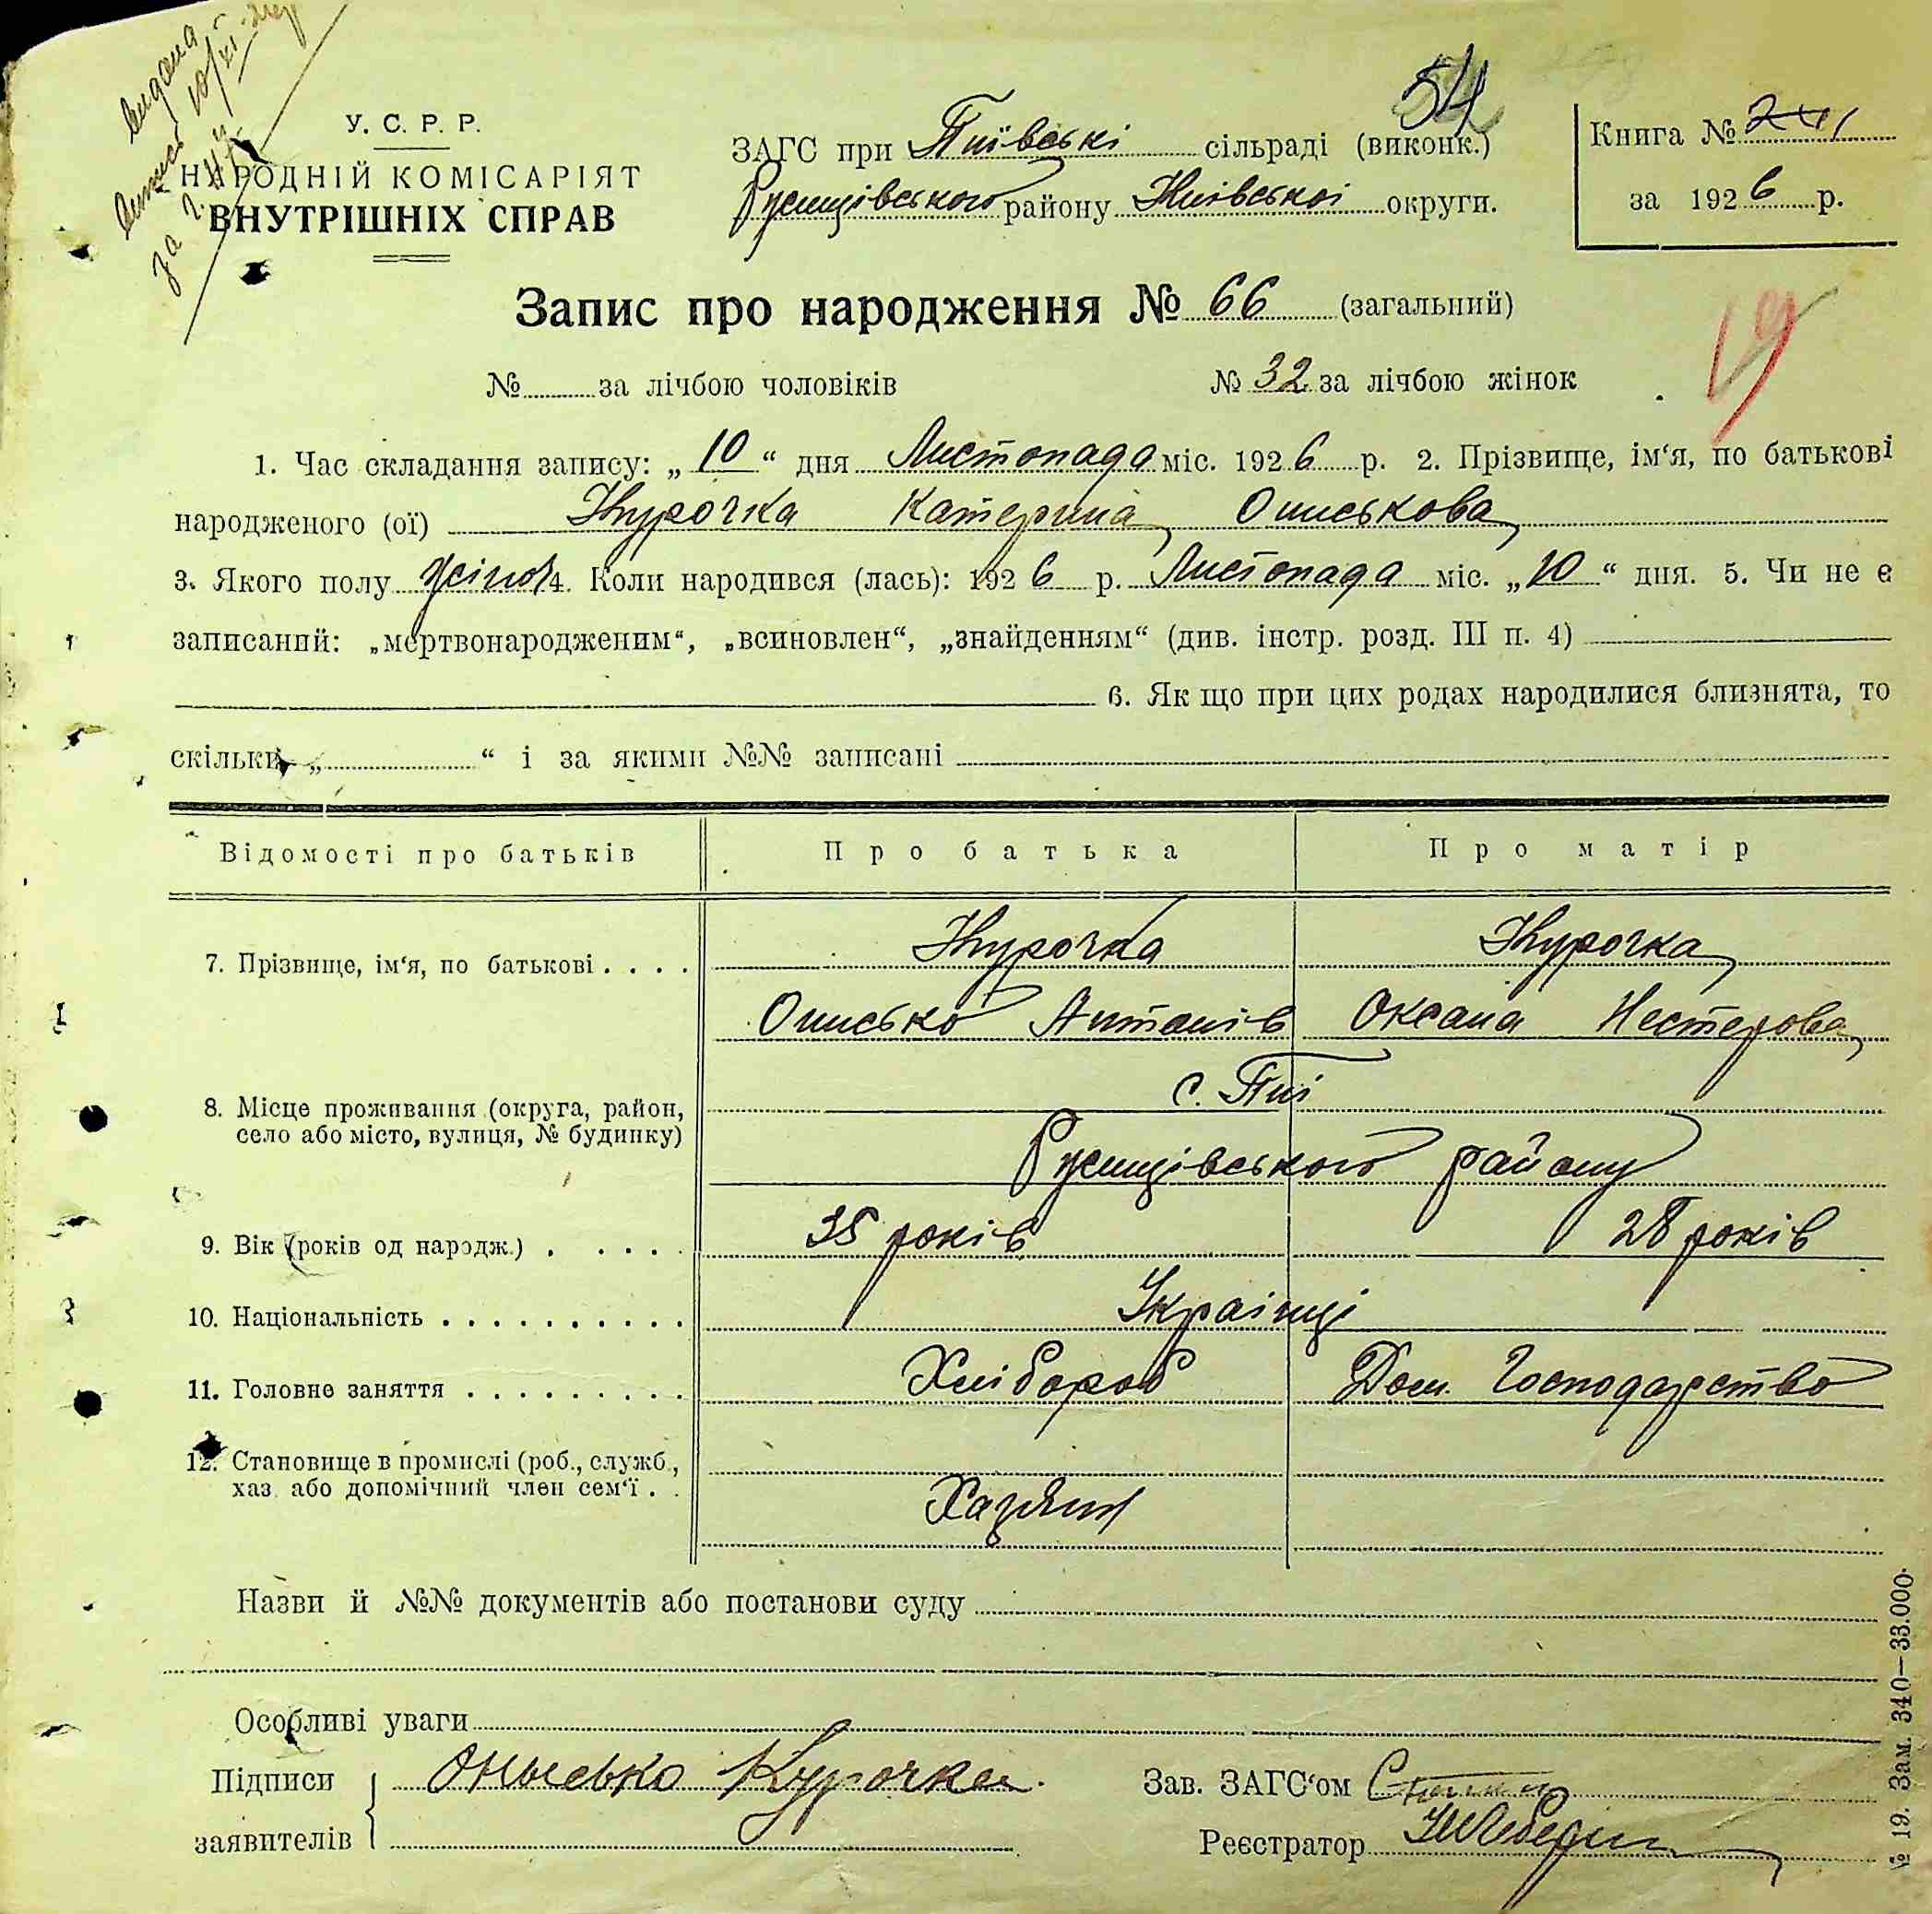 видана
випись 10/XI
за
54
У. С. Р. Р.
НАРОДНІЙ КОМІСАРІЯТ
ВНУТРІШНІХ СПРАВ
ЗАГС при Пиївські сільраді (виконк.)
Ржищівського району Київської округи.
Книга №
за 1926 р.
Запис про народження № 66 (загальний)
19
№ за лічбою чоловіків № 32 за лічбою жінок
1. Час складання запису: „10“ дня Листопада міс. 1926 р. 2. Прізвище, ім‘я, по батькові
народженого (ої) Курочка Катерина Ониськова
3. Якого полу жіноч 4. Коли народився (лась): 1926 р. Листопада міс. „10“ дня. 5. Чи не є
записаний: „мертвонародженим“, „всиновлен“, „знайденням“ (див. інстр. розд. III п. 4)
6. Як що при цих родах народилися близнята, то
скільки „ “ і за якими №№ записані
Відомості про батьків Про батька Про матір
7. Прізвище, ім‘я, по батькові . . . . Курочка Курочка
Онисько Антонів Оксана Нестерова
8. Місце проживання (округа, район, с. Пиї
село або місто, вулиця, № будинку) Ржищівського району
9. Вік (років од народж.) . . . . . 35 років 28 років
10. Національність . . . . . . . . . . Українці
11. Головне заняття . . . . . . . . . Хлібороб Дом. Господарство
12. Становище в промислі (роб., служб.,
хаз. або допомічний член сем‘ї . . Хазяин
Назви й №№ документів або постанови суду
Особливі уваги
Підписи Онысько Курочка. Зав. ЗАГС‘ом
заявителів Реєстратор
№ 19. Зам. 340—33.000.